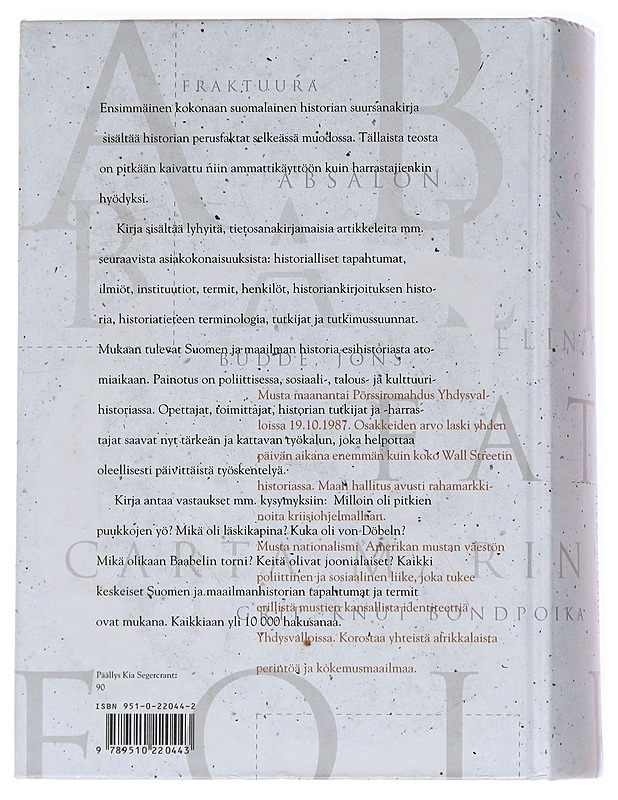 FRAKTUURA
Ensimmäinen kokonaan suomalainen historian suursanakirja
sisältää historian perusfaktat selkeässä muodossa. Tällaista teosta
on pitkään kaivattu niin ammattikäyttöön kuin harrastajienkin
ABSALON
hyödyksi.
Kirja sisältää lyhyitä, tietosanakirjamaisia artikkeleita mm.
seuraavista asiakokonaisuuksista: historialliset tapahtumat,
ilmiöt, instituutiot, termit, henkilöt, historiankirjoituksen histo-
ria, historiatieteen terminologia, tutkijat ja tutkimussuunnat.
ELIN
Mukaan tulevat Suomen ja maailman historia esihistoriasta ato-
BUDDE, JÖNS
miaikaan. Painotus on poliittisessa, sosiaali-, talous- ja kulttuuri-
historiassa. Opettajat, toimittajat, historian tutkijat ja -harras-
tajat saavat nyt tärkeän ja kattavan työkalun, joka helpottaa
oleellisesti päivittäistä työskentelyä.
Kirja antaa vastaukset mm. kysymyksiin: Milloin oli pitkien
puukkojen yö? Mikä oli läskikapina? Kuka oli von Döbeln?
Mikä olikaan Baabelin torni? Keitä olivat joonialaiset? Kaikki
keskeiset Suomen ja maailmanhistorian tapahtumat ja termit
ovat mukana. Kaikkiaan yli 10 000 hakusanaa.
Musta maanantai Pörssiromahdus Yhdysval-
loissa 19.10.1987. Osakkeiden arvo laski yhden
päivän aikana enemmän kuin koko Wall Streetin
historiassa. Maan hallitus avusti rahamarkki-
noita kriisiohjelmallaan.
Musta nationalismi Amerikan mustan väestön
poliittinen ja sosiaalinen liike, joka tukee
erillistä mustien kansallista identiteettiä
Yhdysvalloissa. Korostaa yhteistä afrikkalaista
perintöä ja kokemusmaailmaa.
CARTA MARIN
KNUT BONDPOIKA
Päällys Kia Segercrantz
90
ISBN 951-0-22044-2
9 789510 220443
FOLI